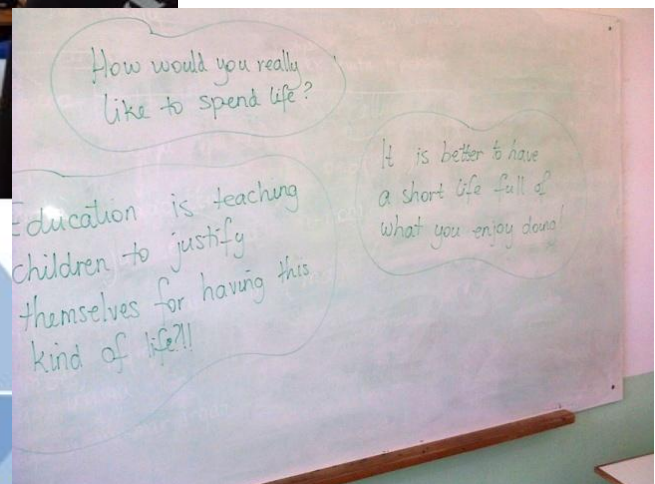 How would you really
like to spend life?
Education is teaching
children to justify
themselves for having this
kind of life?!!
It is better to have
a short life full of
what you enjoy doing!